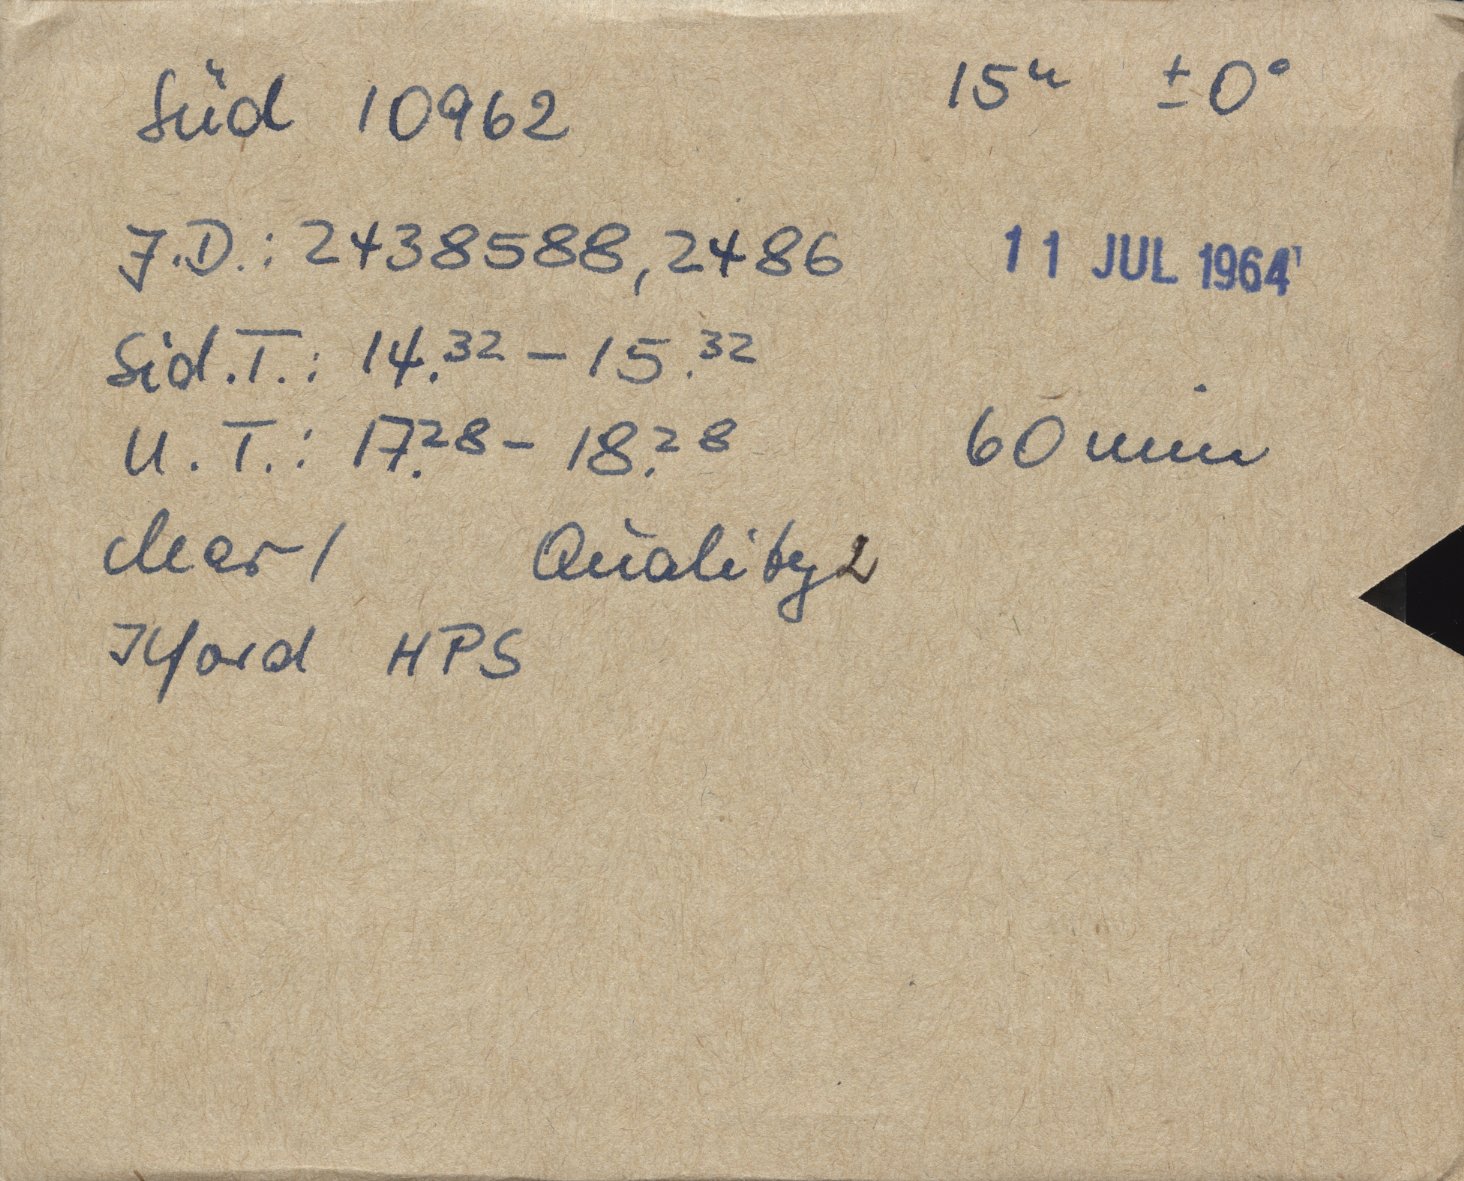 Süd 10962 15ʰ ±0°
J.D.: 2438588,2486 11 JUL 1964
Sid.T.: 14.32 – 15.32
U.T.: 17.28 – 18.28 60 min
clear 1 Quality 2
Ilford HPS